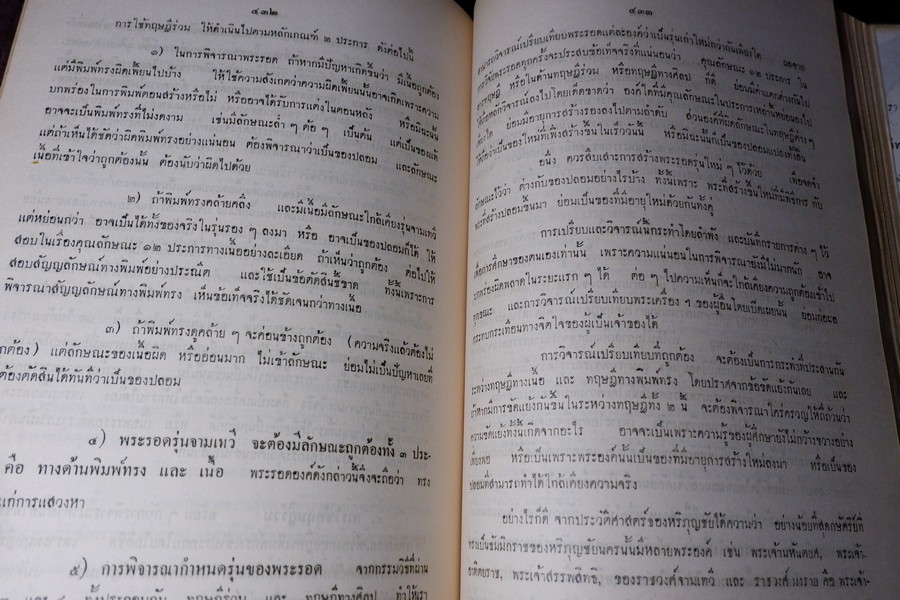 ๔๓๒
การใช้ทฤษฎีร่วม ให้ดำเนินไปตามหลักเกณฑ์ ๒ ประการ ดังต่อไปนี้
๑) ในการพิจารณาพระรอด ถ้าหากมีปัญหาเกิดขึ้นว่า มีเนื้อถูกต้อง
แต่มีพิมพ์ทรงผิดเพี้ยนไปบ้าง ให้ใช้ความสังเกตว่าความผิดเพี้ยนนั้นอาจเกิดเพราะความ
บกพร่องในการพิมพ์ตอนสร้างหรือไม่ หรืออาจได้รับการแต่งในตอนหลัง หรือมิฉะนั้น
อาจจะเป็นพิมพ์ทรงที่ไม่งดงาม เช่นมีลักษณะล่ำ ๆ ต้อ ๆ เป็นต้น แต่เป็นของแท้
แต่ถ้าเห็นได้ชัดว่าผิดพิมพ์ทรงอย่างแน่นอน ต้องพิจารณาว่าเป็นของปลอม และลักษณะ
เนื้อที่เข้าใจว่าถูกต้องนั้น ต้องนับว่าผิดไปด้วย
๒) ถ้าพิมพ์ทรงคล้ายคลึง และมีเนื้อมีลักษณะใกล้เคียงรุ่นจามเทวี
แต่หย่อนกว่า อาจเป็นได้ทั้งของจริงในรุ่นรอง ๆ ลงมา หรือ อาจเป็นของปลอมก็ได้ ให้
สอบในเรื่องคุณลักษณะ ๑๒ ประการทางเนื้ออย่างละเอียด ถ้าเห็นว่าถูกต้อง ต่อไปให้
สอบสัญญลักษณ์ทางพิมพ์อย่างประณีต และใช้เป็นข้อตัดสินชี้ขาด ทั้งนี้เพราะการ
พิจารณาสัญญลักษณ์ทางพิมพ์ทรง เห็นข้อเท็จจริงได้ชัดเจนกว่าทางเนื้อ
๓) ถ้าพิมพ์ทรงดูคล้าย ๆ จะค่อนข้างถูกต้อง (ความจริงแล้วต้องไม่
ถูกต้อง) แต่ลักษณะของเนื้อผิด หรืออ่อนมาก ไม่เข้าลักษณะ ย่อมไม่เป็นปัญหาเลยที่
ต้องตัดสินได้ทันทีว่าเป็นของปลอม
๔) พระรอดรุ่นจามเทวี จะต้องมีลักษณะถูกต้องทั้ง ๓ ประ-
คือ ทางด้านพิมพ์ทรง และ เนื้อ พระรอดองค์ดังกล่าวนี้จึงจะถือว่า ทรง
แก่การแสวงหา
๕) การพิจารณากำหนดรุ่นของพระรอด จากกรรมวิธีที่ผ่าน
ทั้งประกอบกับ ทฤษฎีร่วม และ ทฤษฎีทางศิลป ทำให้เรา
๔๓๓
วิจารณ์เปรียบเทียบพระรอดแต่ละองค์ว่าเป็นรุ่นเก่าใหม่กว่ากันเพียงใด
พระรอดทุกครั้งจะประสบข้อเท็จจริงที่แน่นอนว่า คุณลักษณะ ๑๒ ประการ ใน
หรือในด้านทฤษฎีร่วม หรือทฤษฎีทางศิลป ก็ดี ย่อมมีค่าแตกต่างกันไป
หลักวิจารณ์ลงไปโดยเด็ดขาดว่า องค์ใดที่มีคุณลักษณะในประการเหล่านี้หย่อนลงไป
ย่อมมีอายุการสร้างรองลงไปตามลำดับ ส่วนองค์ที่ผิดลักษณะในทฤษฎีต่าง ๆ
ว่าเป็นของใหม่ที่เพิ่งสร้างขึ้นในเร็ววันนี้ หรือมิฉะนั้นก็เป็นของปลอมแปลงทั้งสิ้น
อนึ่ง ควรสืบเสาะการสร้างพระรอดรุ่นใหม่ ๆ ไว้ด้วย เพื่อจดจำ
ลักษณะไว้ว่า ต่างกับของปลอมอย่างไรบ้าง ทั้งนี้เพราะ พระที่สร้างขึ้นใหม่ที่มีพิธีการ กับ
พระที่สร้างปลอมขึ้นมา ย่อมเป็นของที่มีอายุใหม่ด้วยกันทั้งคู่
การเปรียบและวิจารณ์นี้กระทำโดยลำพัง และบันทึกรายการต่าง ๆ ไว้
เพื่อการศึกษาของตนเองเท่านั้น เพราะความแน่นอนในการพิจารณายังมีไม่มากนัก อาจ
บกพร่องผิดพลาดในระยะแรก ๆ ได้ ต่อ ๆ ไปความเห็นก็จะใกล้เคียงความถูกต้องเข้าไป
ทุกขณะ และการวิจารณ์เปรียบเทียบพระเครื่อง ๆ ของผู้อื่นโดยเปิดเผยนั้น ย่อมก่อผล
กระทบกระเทือนทางจิตใจของผู้เป็นเจ้าของได้
การวิจารณ์เปรียบเทียบที่ถูกต้อง จะต้องเป็นการกระทำที่ประสานกัน
ระหว่างทฤษฎีทางเนื้อ และ ทฤษฎีทางพิมพ์ทรง โดยปราศจากข้อขัดแย้งกันเลย และ
ถ้าหากมีการขัดแย้งกันขึ้นในระหว่างทฤษฎีทั้ง ๒ นี้ จะต้องพิจารณาใคร่ครวญให้ถี่ถ้วนว่า
ความขัดแย้งนั้นเกิดจากอะไร อาจจะเป็นเพราะความรู้ของผู้ศึกษายังไม่กว้างขวางอย่าง
เพียงพอ หรือเป็นเพราะพระองค์นั้นเป็นของที่มีอายุการสร้างใหม่ลงมา หรือเป็นของ
ปลอมที่สามารถทำได้ใกล้เคียงความจริง
อย่างไรก็ดี จากประวัติศาสตร์ของหริภุญชัยได้ความว่า อย่างน้อยที่สุดกษัตริย์ที่
ทรงเป็นธัมมิกราชของหริภุญชัยนครนั้นมีหลายพระองค์ เช่น พระเจ้ามหันตยศ, พระเจ้า-
อาทิตยราช, พระเจ้าสรรพสิทธิ์, ของราชวงศ์จามเทวี และ ราชวงศ์ มงราย คือ พระเจ้า-